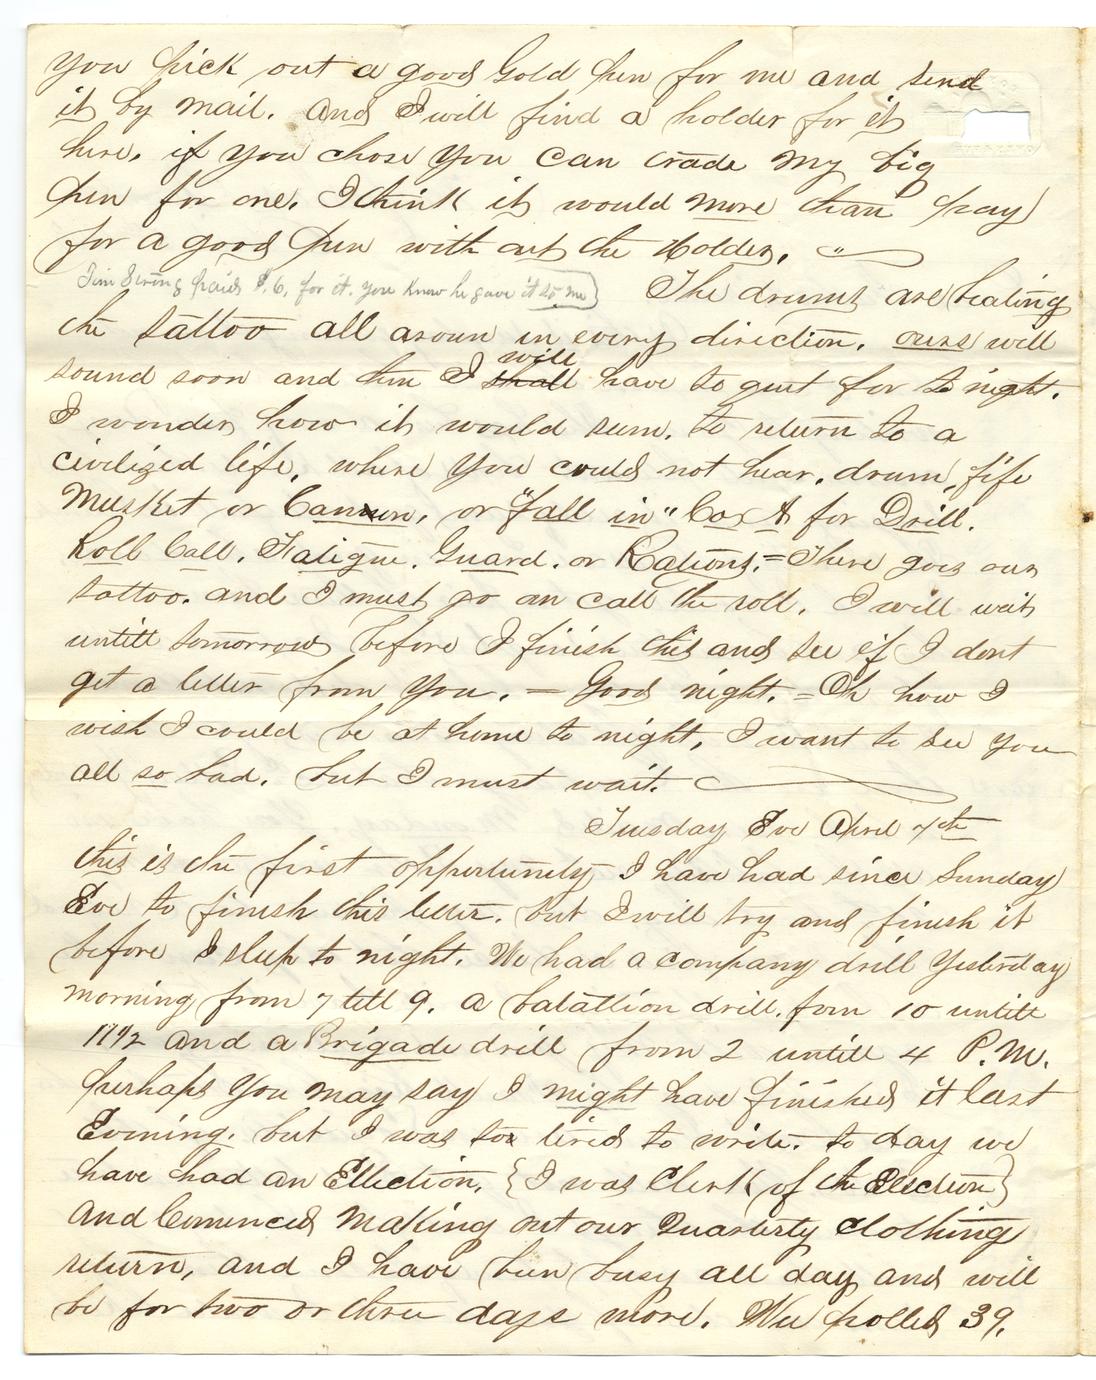 you pick out a good Gold pen for me and send
it by mail. and I will find a holder for it
here. if you chose you can trade my big
pen for one. I think it would more than pay
for a good pen with out the Holder.
Jim Strong paid $.6, for it. you know he gave it to me
The drums are beating
the tattoo all aroun in every direction. ours will
sound soon and then I shall will have to quit for to night.
I wonder how it would seem. to return to a
civilized life, where you could not hear, drum, fife
Musket or Cannon, or "fall in" Co. A for Drill.
Roll Call. Fatigue. Guard. or Rations. = There goes our
tattoo. and I must go an call the roll. I will wait
untill tomorrow before I finish this and see if I dont
get a letter from you. = Good night. = Oh how I
wish I could be at home to night, I want to see you
all so bad. but I must wait.
Tuesday Eve April 7th
this is the first opportunity I have had since Sunday
Eve to finish this letter. but I will try and finish it
before I sleep to night. We had a company drill Yesterday
morning from 7 till 9. a batallion drill. from 10 untill
11 1/2 and a Brigade drill from 2 untill 4 P.M.
perhaps you may say I might have finished it last
Evening. but I was too tired to write. to day we
have had an Ellection. {I was Clerk of the Election}
and Comenced making out our Quarterly clothing
return, and I have been busy all day and will
be for two or three days more. Wee polled 39.